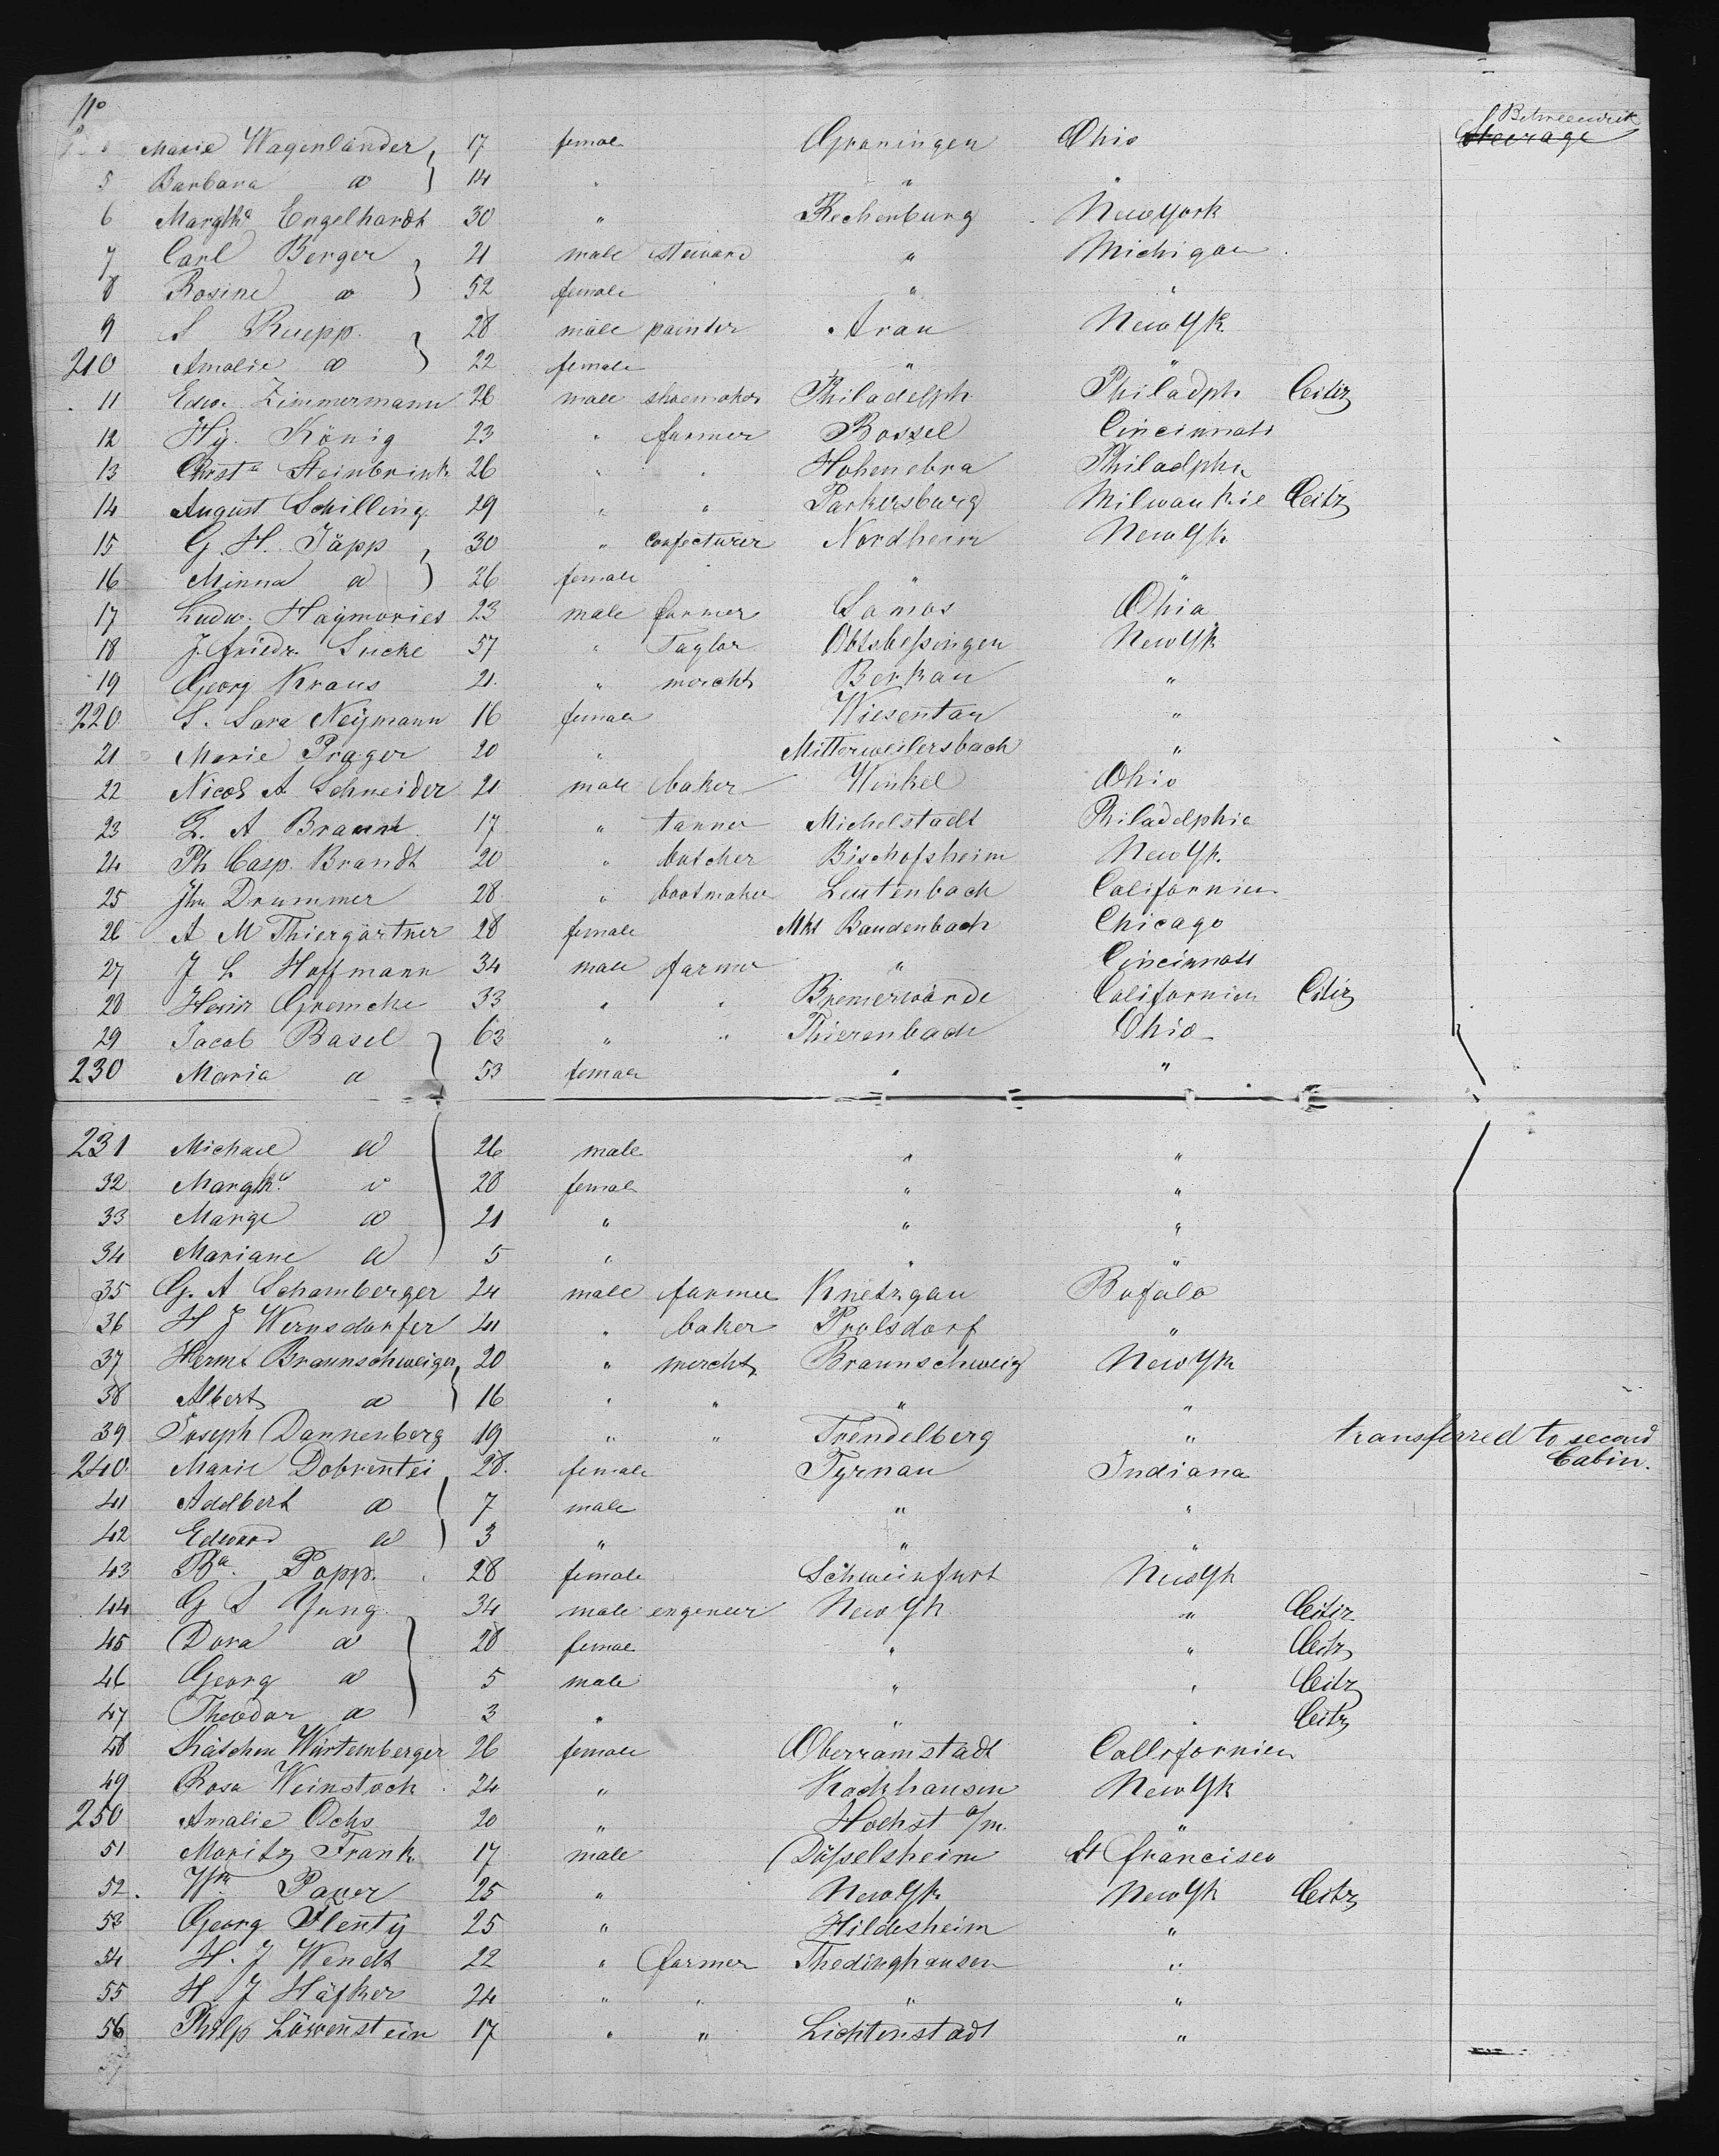 No Betweendeck
Marie Wagenländer 17 female Groningen Ohio Steerage
5 Barbara " 14 " " "
6 Margtha Engelhardt 30 " Rechenburg New York
7 Carl Berger 21 male steward " Michigan
8 Rosine " 52 female " "
9 S Ruepp. 28 male painter Arau New Yk
210 Amalie " 22 female " "
11 Edw. Zimmermann 26 male shoemaker Philadelph Philadph Citiz
12 Hy. König 23 " farmer Bossel Cincinnati
13 Christn Steinbrink 26 " " Hohenebra Philadphia
14 August Schilling 29 " " Parkersburg Milwaukie Ceitz
15 G. H. Jäpp 30 " confecturer Nordheim New Yk
16 Minna " 26 female " "
17 Ludw. Hagmories 23 male farmer Lamas Ohia
18 J. Friedr. Lucke 57 " Taylor Obtsheßingen New Yk
19 Georg Kraus 21 " mercht Berkau "
220 S. Sara Neÿmann 16 female Wiesentau "
21 Marie Prager 20 " Mitterweilersbach "
22 Nicol A Schneider 21 male baker Winkel Ohio
23 L. A Braunt 17 " tanner Michelstadt Philadelphia
24 Ph Casp. Brandt 20 " butcher Bischofsheim New Yk.
25 Jhn Drummer 28 " bootmaker Leutenbach Californien
26 A M Thiergärtner 28 female Mkt Baudenbach Chicago
27 J L Hoffmann 34 male farmer " Cincinnati
28 Heinr Gremcke 33 " " Bremerwörde Californien Citiz
29 Jacob Basel 63 " " Thierenbach Ohio
230 Maria " 53 female " "
231 Michael " 26 male " "
32 Margtha " 28 female " "
33 Marge " 21 " " "
34 Mariane " 5 " " "
35 G. A Schamberger 24 male farmer Knetzgau Bufalo
36 H J Wernsdorfer 41 " baker Prolsdorf "
37 Hermt Braunschweiger 20 " mercht Braunschweig New Yk
38 Albert " 16 " " " "
39 Joseph Dannenberg 19 " " Trendelberg " transferred to second Cabin.
240 Marie Dobrentei 28. female Tyrnau Indiana
41 Adelbert " 7 male " "
42 Edward " 3 " " "
43 Ba. Popp. 28 female Schweinfurt New Yk
44 G S Yung 34 male engeneer New Yk " Ceitiz
45 Dora " 28 female " " Ceitz
46 Georg " 5 male " " Ceitz
47 Theodor " 3 " " " Ceitz
48 Kätchen Würtemberger 26 female Oberramstadt Callifornien
49 Rosa Weinstock 24 " Hackhausen New Yk
250 Amalie Ochs 20 " Hochst a/m. "
51 Moritz Frank 17 male Düßelsheim St Francisco
52. Wm Pauer 25 " New Yk New Yk Ceitz
53 Georg Flentÿ 25 " Hildesheim "
54 H. J Wendt 22 " farmer Thedinghausen "
55 H J Häfker 24 " " " "
56 Philp Löwenstein 17 " " Lichtenstadt "
57